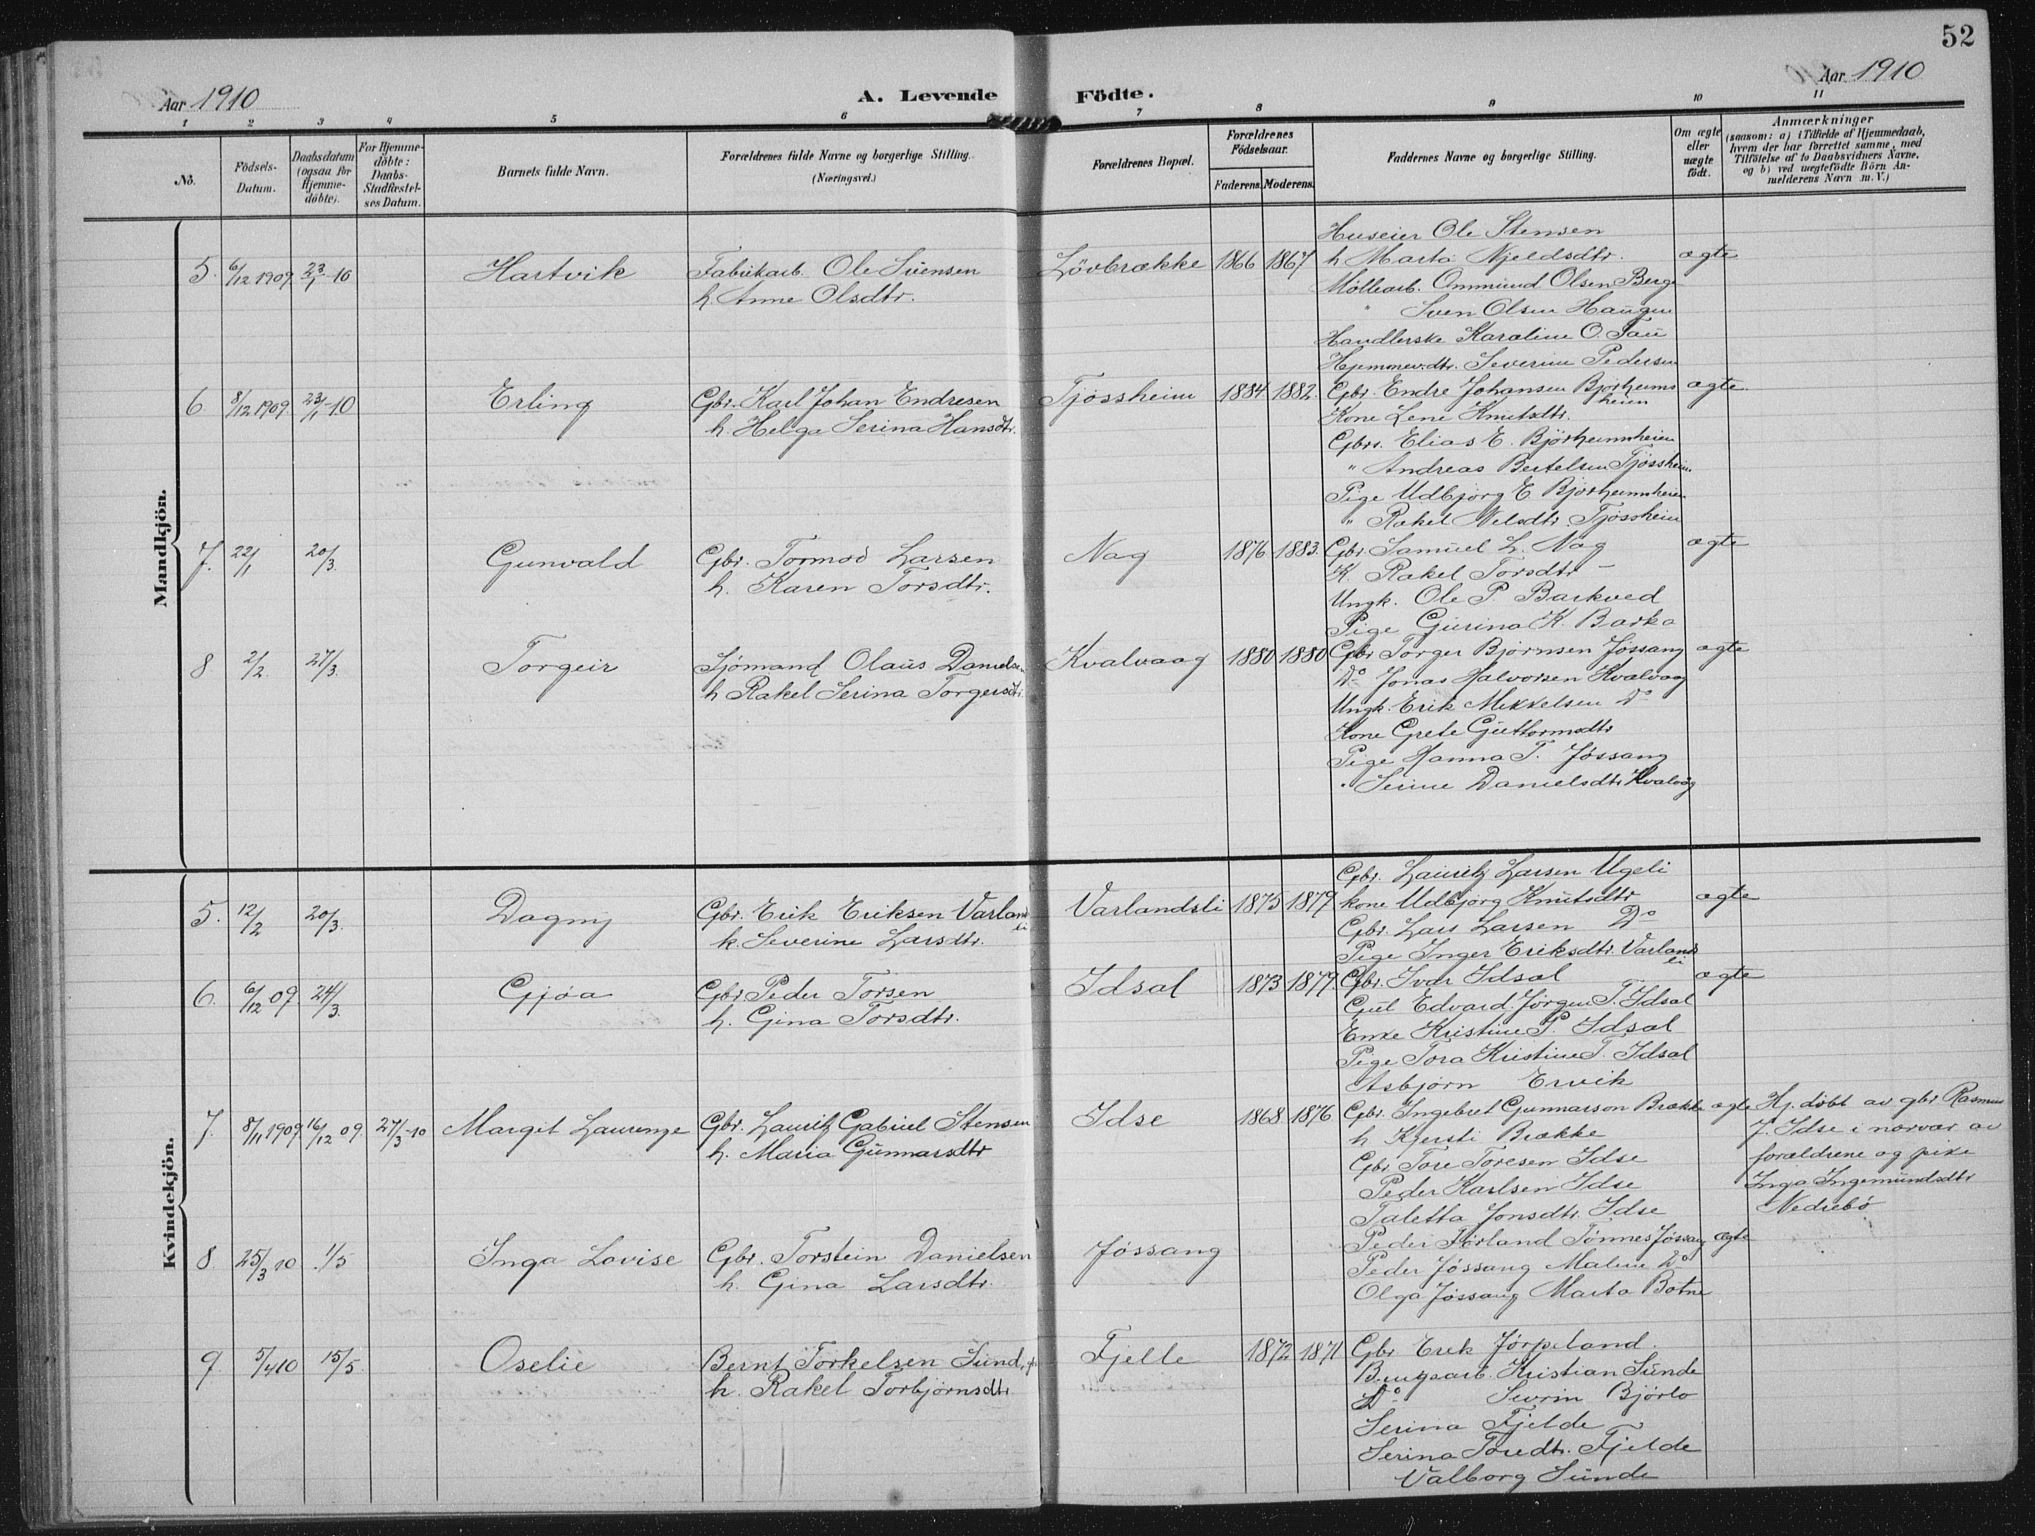 52
Aar 1910
A. Levende Födte.
Aar 1910
1 2 3 4 5 6 7 8 9 10 11
No.
Födsels-Datum.
Daabsdatum (ogsaa for Hjemme-döbte).
For Hjemme-döbte: Daabs-Stadfæstel-ses Datum.
Barnets fulde Navn.
Forældrenes fulde Navne og borgerlige Stilling. (Næringsvei.)
Forældrenes Bopæl.
Forældrenes Födselsaar.
Faderens. Moderens.
Faddernes Navne og borgerlige Stilling.
Om ægte eller uægte født.
Anmærkninger
(saasom: a) i Tilfælde af Hjemmedaab,
hvem der har forrettet samme, med
Tilföielse af to Daabsvidners Navne,
og b) ved uægtefödte Börn An-
melderens Navn m. V.)
Mandkjön.
5. 6/12 1909 23/1-10 Hartvik Fabrikarb. Ole Svensen Lövbrække 1866 1867 ægte
h. Anne Olsdtr.
Huseier Ole Stensen
h Marta Njeldsdtr.
Möllearb. Ommund Olsen Berge
" Sven Olsen Haugen
Handlerske Karoline O. Tau
Hjemmev.dtr. Severine Pedersen
6 8/12 1909. 23/1-10 Erling Gbr. Karl Johan Endresen Tjøssheim 1884 1882. ægte
h. Helga Serina Hansdtr.
Gbr. Endre Johansen Bjørheims
heien
Kone Lene Knutsdtr.
Gbr. Elias E. Bjørheimsheien
" Andreas Bertelsen Tjøssheim
Pige Udbjørg E. Bjørheimsheien
" Rakel Nelsdtr. Tjøssheim
7. 22/1 20/3. Gunvald Gbr. Tormod Larsen Nag 1876 1883. ægte
h. Karen Torsdtr.
Gbr. Samuel L. Nag
K. Rakel Torsdtr –
Ungk. Ole P. Barkved
Pige Gurina K. Barka
8 2/2. 27/3. Torgeir Sjömand Olaus Danielsen Kvalvaag 1880 1880 ægte
h Rakel Serina Torgersdtr.
Gbr Torger Bjørnsen Jøssang
Do Jonas Halvorsen Kvalvaag
Ungk. Erik Mikkelsen Do
Kone Grete Guttormsdtr
Pige Hanna T. Jøssang
" Serine Danielsdtr Kvalvåg
Kvindekjön.
5. 12/2 20/3. Dagny Gbr. Erik Eriksen Varlands
li Varlandsli 1875 1879. ægte
k. Severine Larsdtr.
Gbr. Lauritz Larsen Ugeli
kone Udbjørg Knutsdtr
Gbr. Lars Larsen Do
Pige Inger Eriksdtr. Varlands
li
6. 6/12 09 24/3. Gjøa Gbr Peder Torsen Idsal 1873 1879. ægte
h. Gina Torsdtr.
Gbr. Ivar Idsal
Gut Edvard Jørgen T. Idsal
Enke Kristine P. Idsal
Pige Tora Kristine T. Idsal
Asbjørn Ervik
7. 8/11 1909 16/12 09. 27/3-10 Margit Laurenze Gbr. Lauritz Gabriel Stensen Idse 1868 1876. ægte
h. Maria Gunnarsdtr
Gbr. Ingebret Gunnarson Brække
h Kjersti Brække
Gbr Tore Toresen Idse
Peder Karlsen Idse
Taletta Jonsdtr. Idse
Hj. döbt av gbr Rasmus
J. Idse i nærvær av
forældrene og pike
Inga Ingemundsdtr
Nedrebö
8. 25/3 10 1/5 Inga Lovise Gbr. Torstein Danielsen Jøssang ægte
h. Gina Larsdtr.
Peder Førland Tönnes Jøssang
Peder Jøssang Malene Do
Olga Jøssang Marta Botne
9. 5/4 10 15/5. Oselie Bernt Torkelsen Sund, Fjelle 1872 1871
h. Rakel Torbjørnsdtr
Gbr Erik Jørpeland.
Kristian Sunde
Do Sevrin Bjørlo
Serina Fjelde
Serina Toredtr. Fjelde
Valborg Sunde